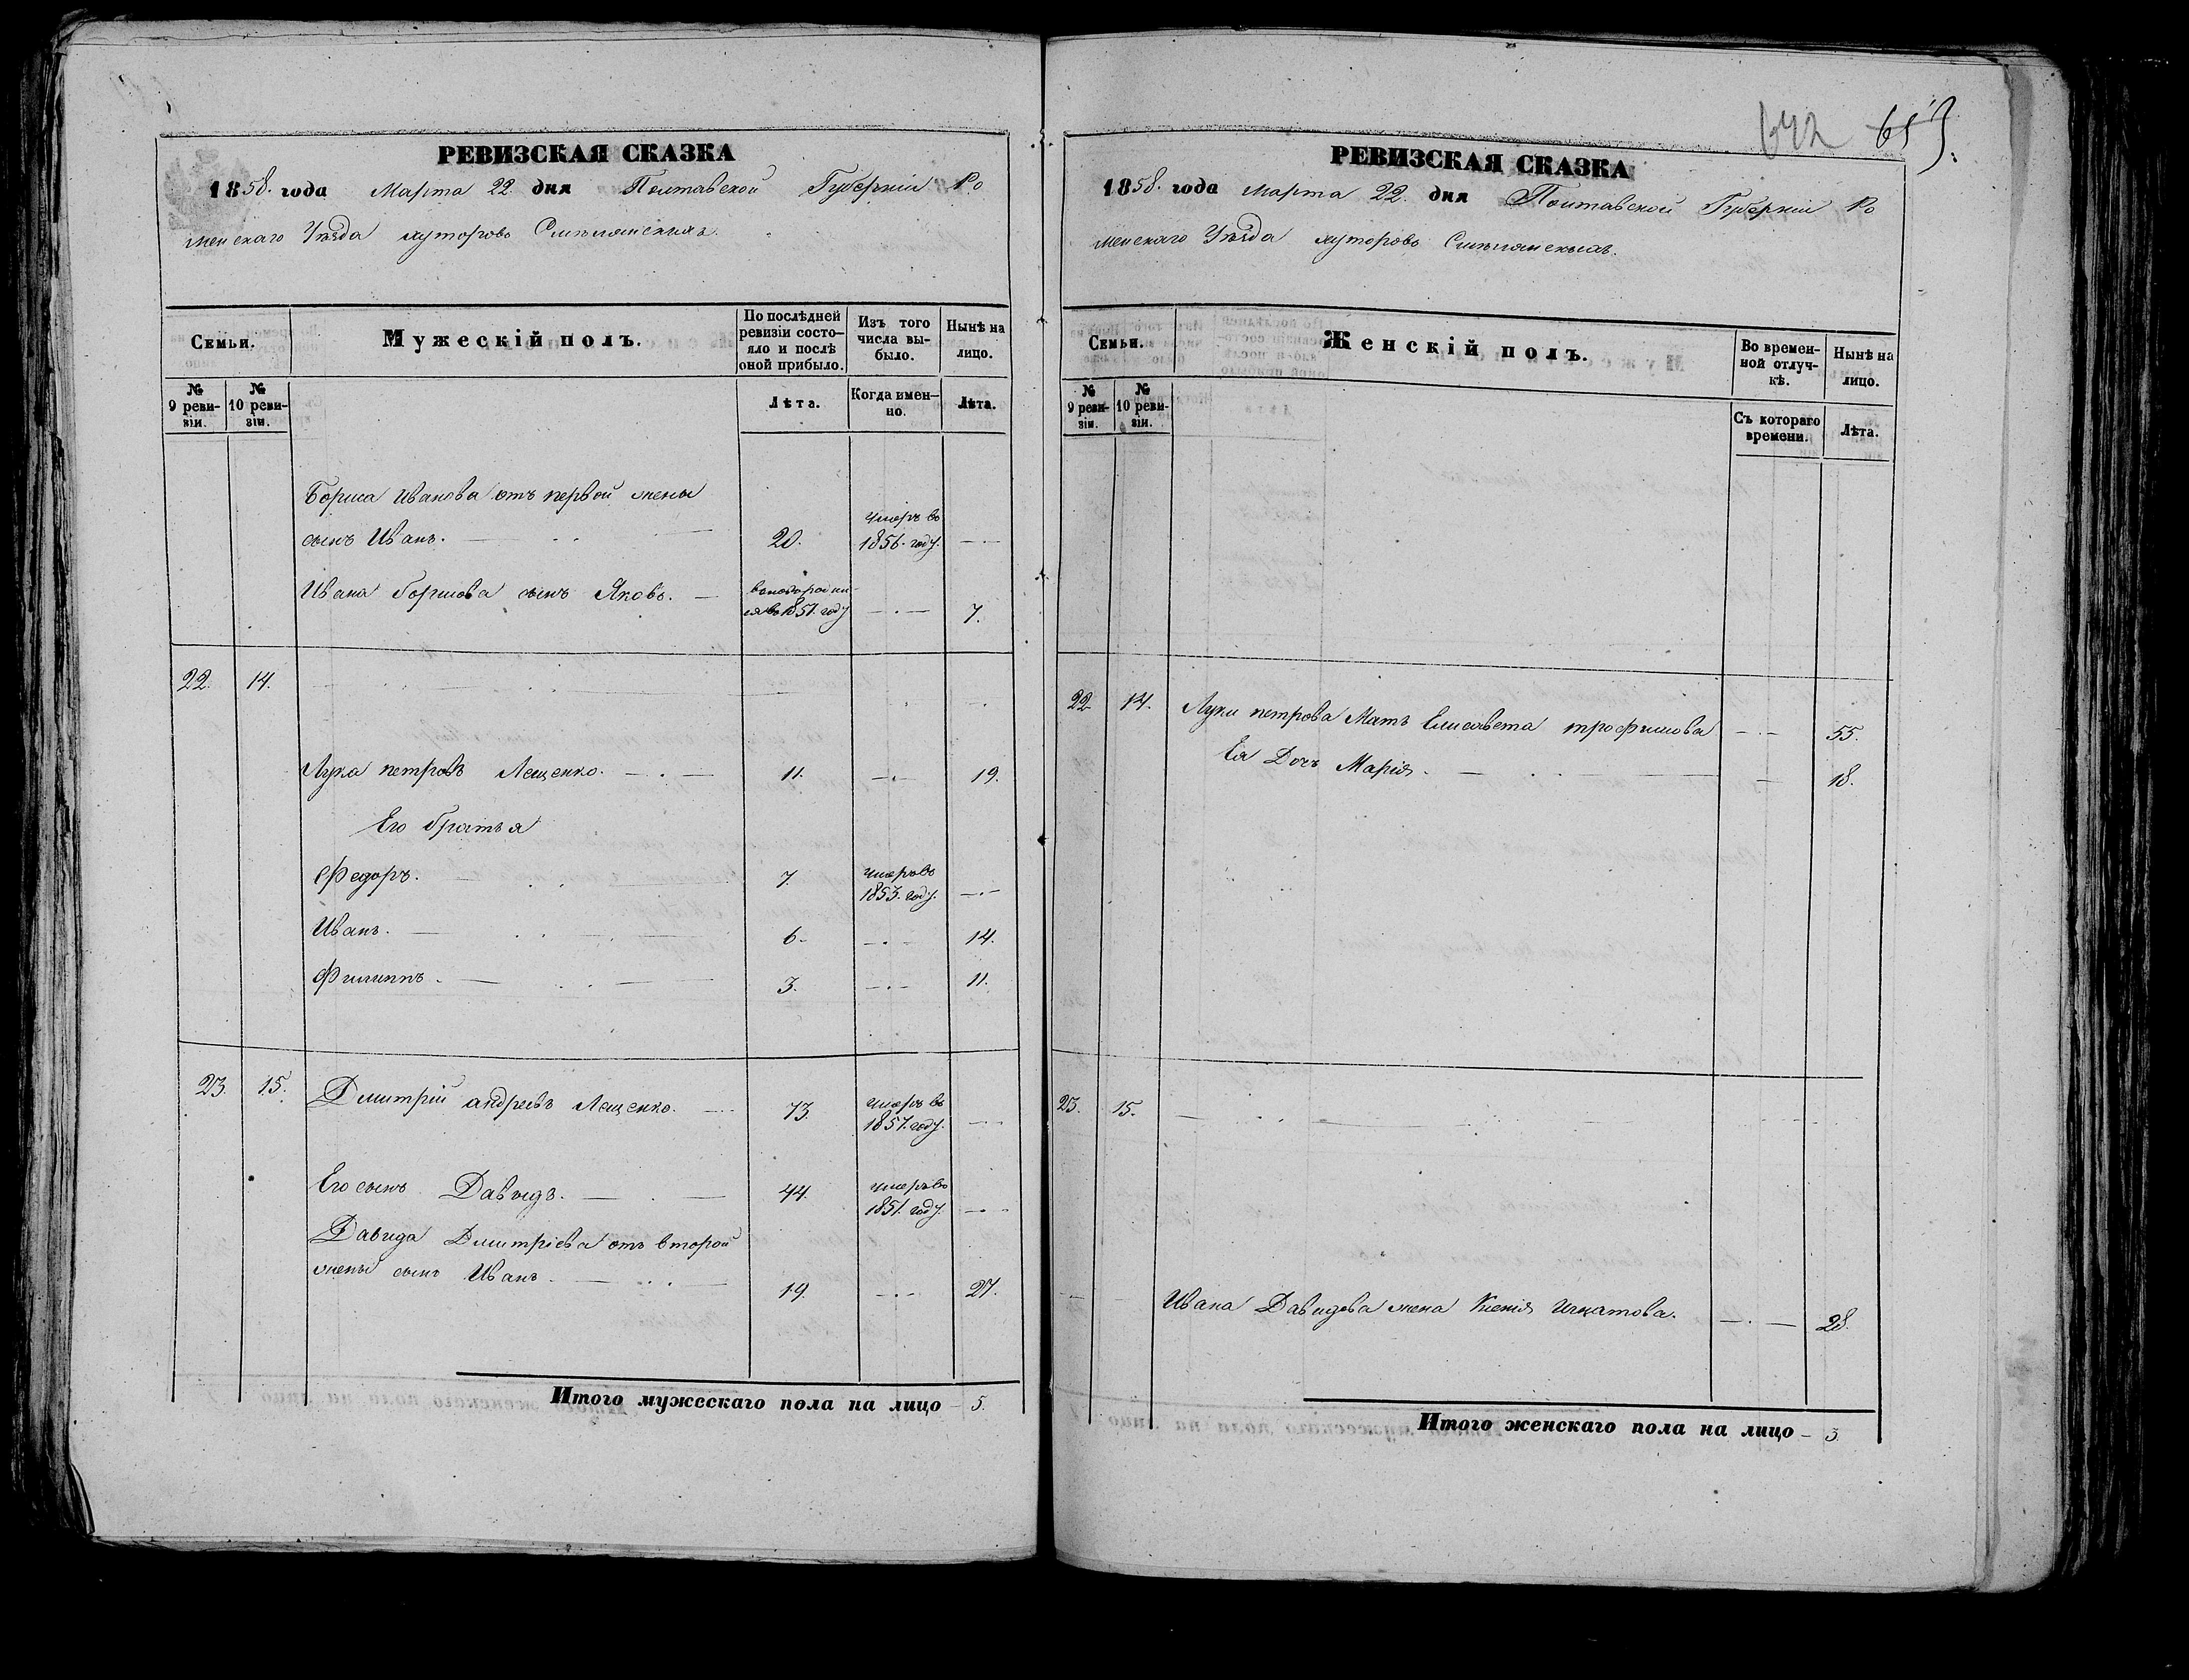 РЕВИЗСКАЯ СКАЗКА
1858. года Марта 22 дня Полтавской Губерніи Ро
менскаго Уѣзда хуторовъ Смѣлянскихъ.
Семьи.
Мужескій полъ.
По послѣдней ревизіи состо-яло и послѣ оной прибыло.
Изъ того числа вы-было.
Нынѣ на лицо.
№ 9 реви-зіи.
№ 10 реви-зіи.
Лѣта.
Когда имен-но.
Лѣта.
Бориса Иванова отъ первой жены
сынъ Иванъ. 20. умеръ въ 1856. году.
Ивана Борисова сынъ Яковъ. 1851. году 7.
22. 14.
Лука петровъ Лещенко. 11. 19.
Его братья
Федоръ. 7. умеръ въ 1853. году.
Иванъ. 6. 14.
Филиппъ. 3. 11.
23. 15. Дмитрій андреевъ Лещенко. 73. умеръ въ 1857. году.
Его сынъ Давидъ. 44. умеръ въ 1851. году.
Давида Дмитріева отъ второй
жены сынъ Иванъ. 19. 27.
Итого мужескаго пола на лицо 5.
642 653.
РЕВИЗСКАЯ СКАЗКА
1858. года Марта 22. дня Полтавской Губерніи Ро
менскаго Уѣзда хуторовъ Смѣлянскихъ.
Семьи.
Женскій полъ.
Во времен-ной отлуч-кѣ.
Нынѣ на лицо.
№ 9 реви-зіи.
№ 10 реви-зіи.
Съ котораго времени.
Лѣта.
22 14. Луки петрова Мать Елисавета трофимова 55.
Ея Дочь Марія. 18.
23. 15.
Ивана Давидова жена Ксенія Игнатова. 28.
Итого женскаго пола на лицо 3.